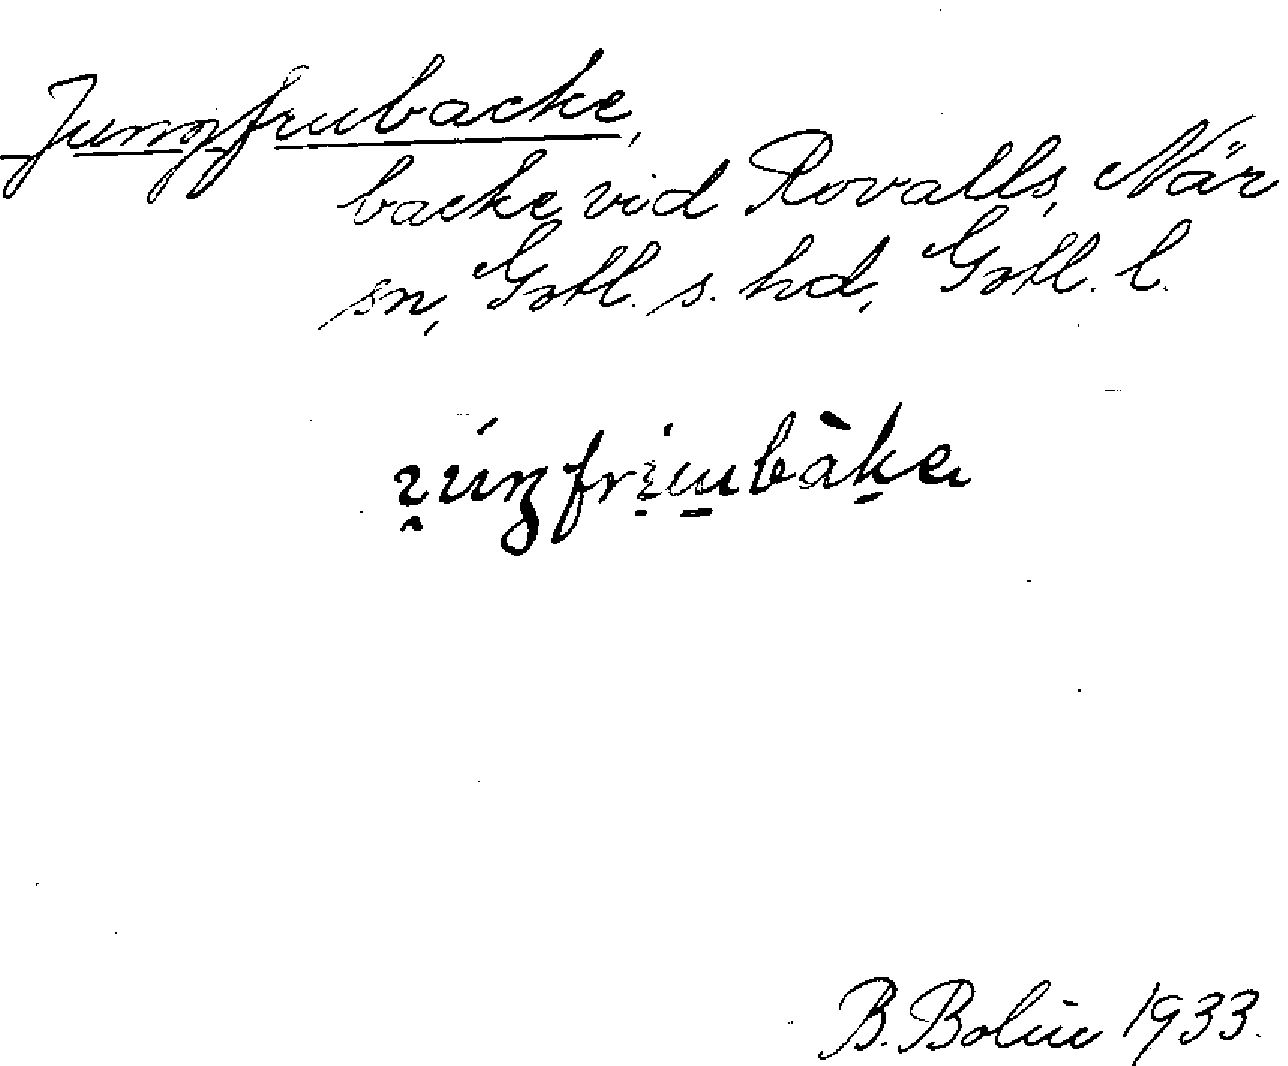 Jungfrubacke,
backe vid Rovalls, När
sn, Gotl. s. hd, Gotl. l.
B. Bolin 1933.